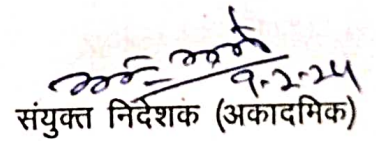 9-2-24
संयुक्त निर्देशक (अकादमिक)